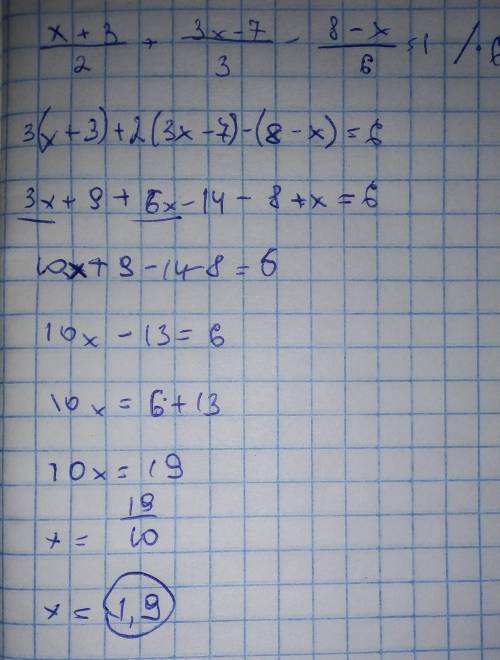 x + 3 / 2 + 3x - 7 / 3 - 8 - x / 6 = 1 / · 6
3(x + 3) + 2(3x - 7) - (8 - x) = 6
3x + 9 + 6x - 14 - 8 + x = 6
10x + 9 - 14 - 8 = 6
10x - 13 = 6
10x = 6 + 13
10x = 19
x = 19 / 10
x = 1,9